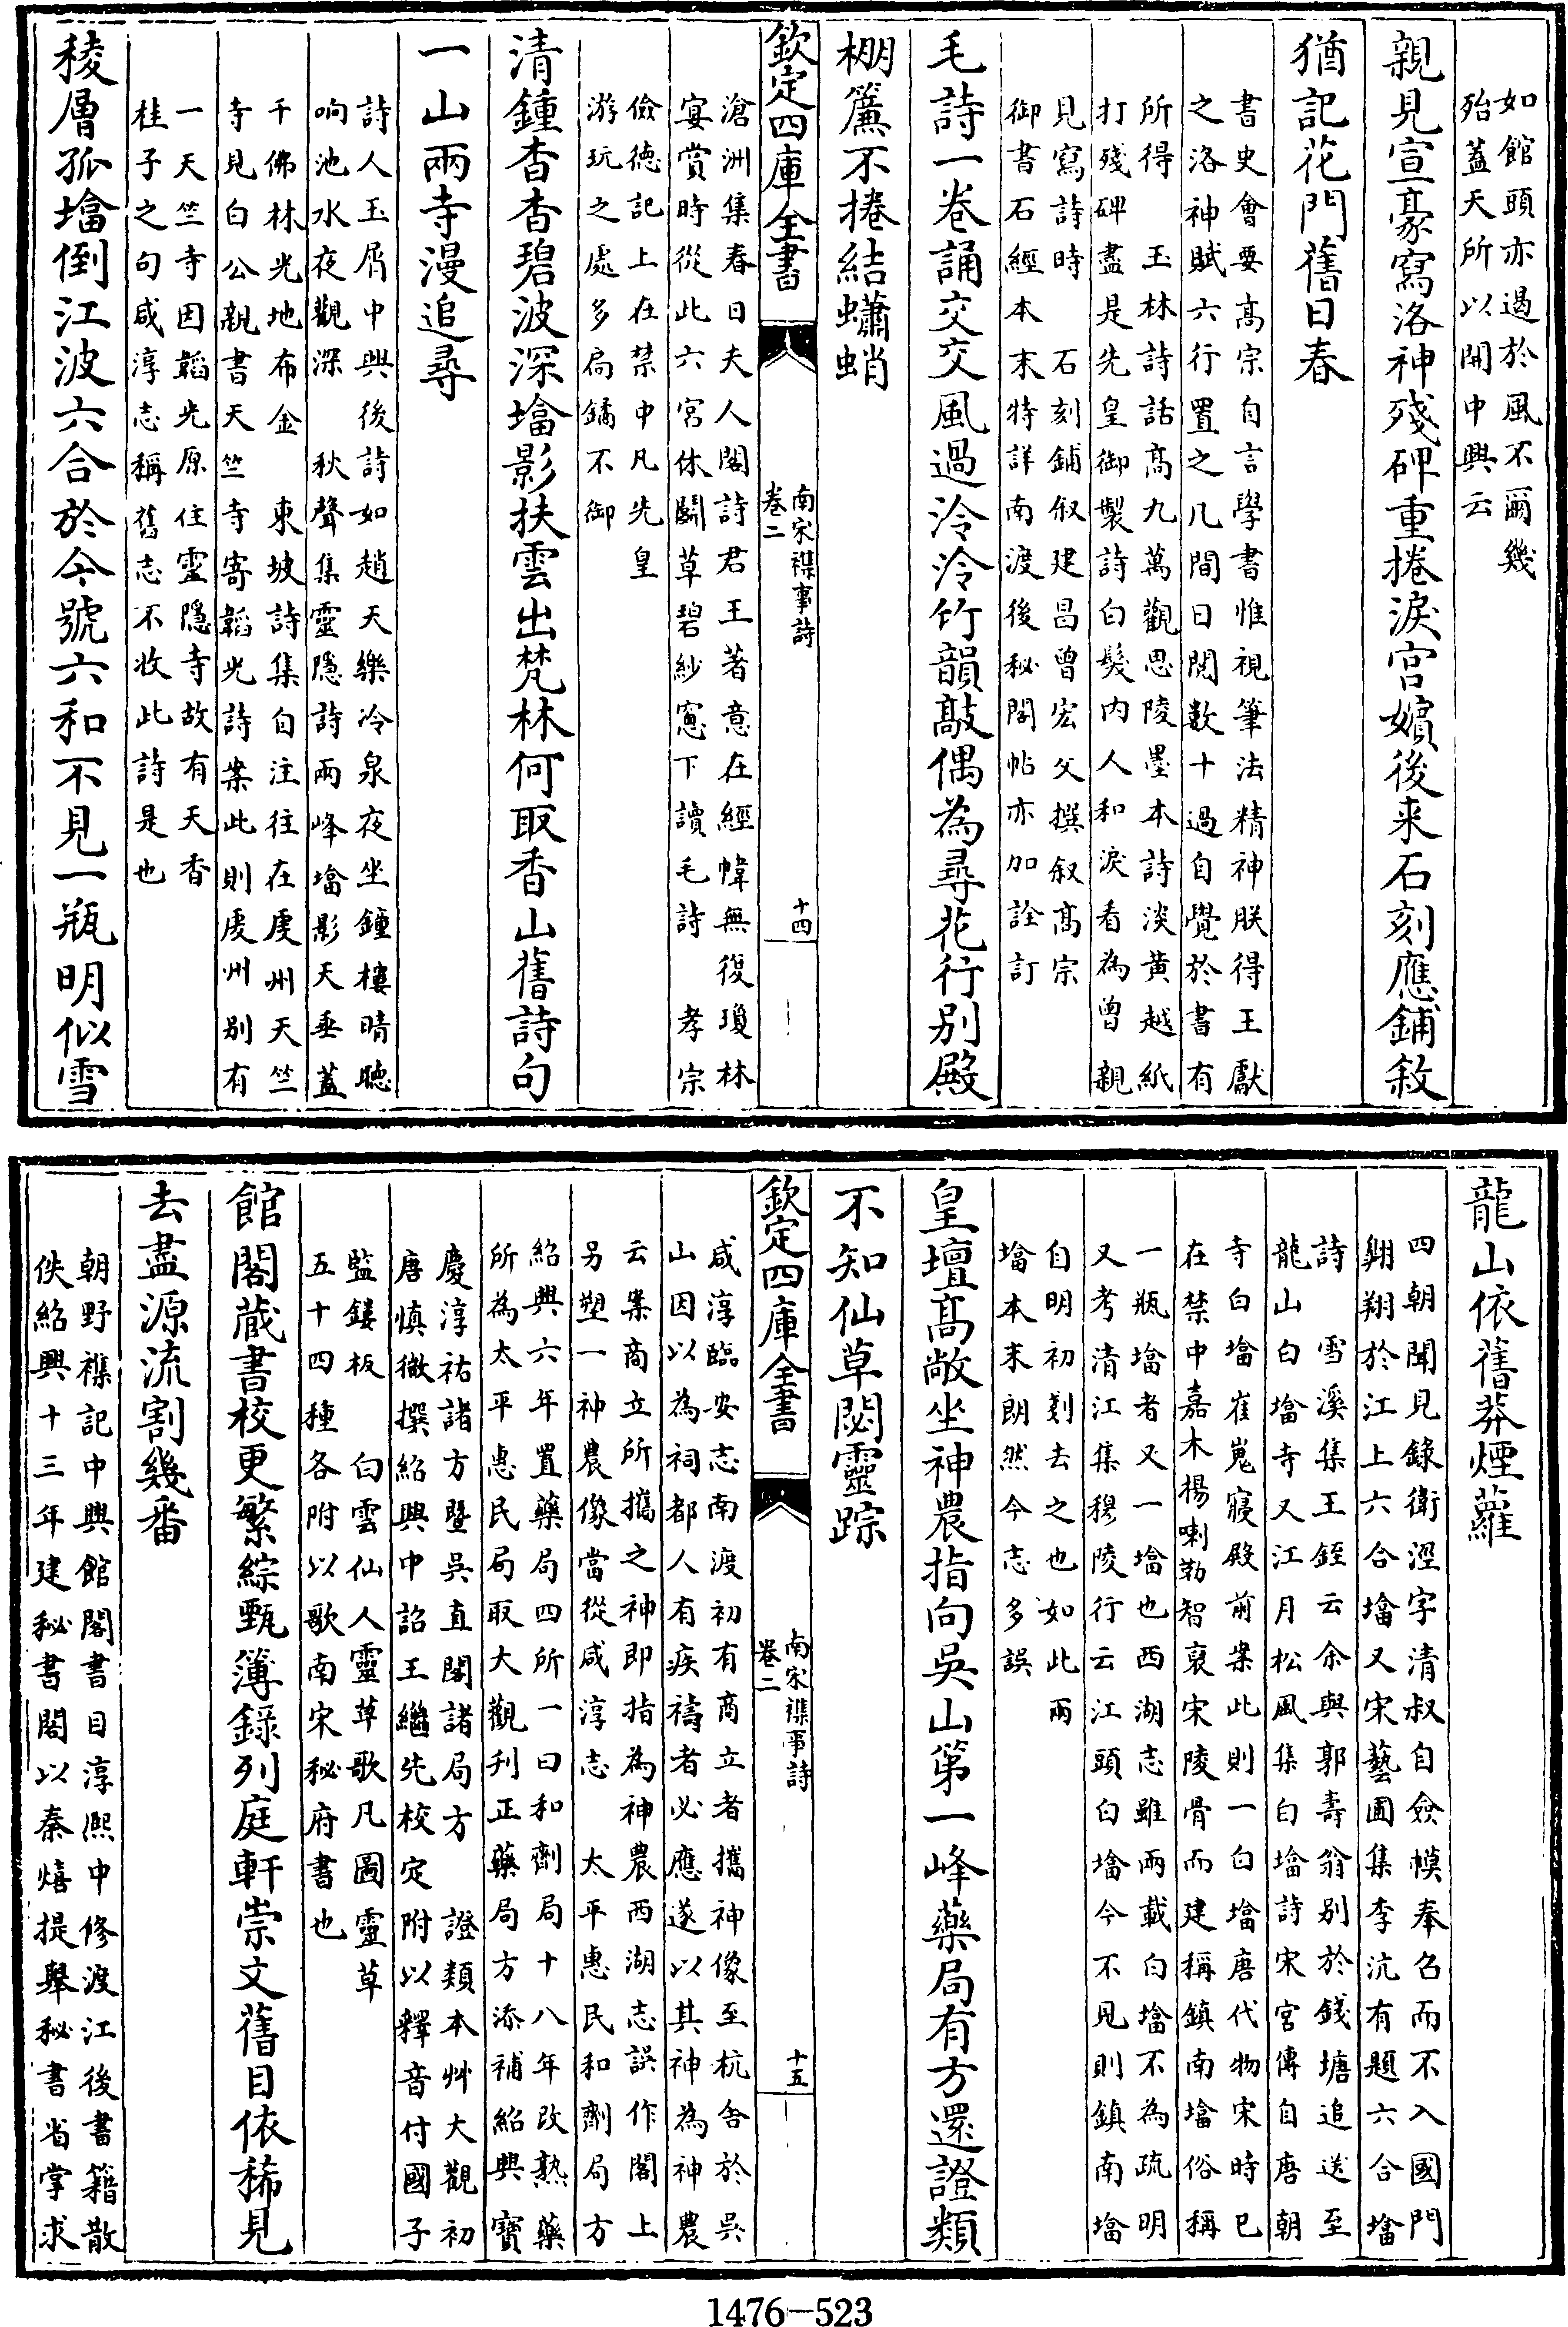 如館頭亦過於風不爾幾
殆蓋天所以開中興云
親見宣豪寫洛神殘碑重捲淚宮嬪後来石刻應鋪敘
猶記花門舊日春
書史會要高宗自言學書惟視筆法精神朕得王獻
之洛神賦六行置之几間日閱數十過自覺於書有
所得 玉林詩話高九萬觀思陵墨本詩淡黄越紙
打殘碑盡是先皇御製詩白髮内人和淚看為曾親
見寫詩時 石刻鋪叙建昌曾宏父撰叙高宗
御書石經本末特詳南渡後秘閣帖亦加詮訂
毛詩一卷誦交交風過泠泠竹韻敲偶為尋花行别殿
棚簾不捲結蠨蛸
欽定四庫全書
南宋襍事詩
卷二
十四
滄洲集春日夫人閣詩君王著意在經幃無復瓊林
宴賞時從此六宮休鬭草碧紗窻下讀毛詩 孝宗
儉德記上在禁中凡先皇
游玩之處多局鐍不御
清鍾杳杳碧波深墖影扶雲出梵林何取香山舊詩句
一山兩寺漫追尋
詩人玉屑中興後詩如趙天樂冷泉夜坐鐘樓晴聴
响池水夜觀深 秋聲集靈隱詩兩峰墖影天垂蓋
千佛林光地布金 東坡詩集自注往在虔州天竺
寺見白公親書天竺寺寄韜光詩案此則虔州别有
一天竺寺因韜光原住靈隱寺故有天香
桂子之句咸淳志稱舊志不收此詩是也
稜層孤墖倒江波六合於今號六和不見一瓶明似雪
龍山依舊莽煙蘿
四朝聞見錄衛涇字清叔自僉樞奉召而不入國門
翺翔於江上六合墖又宋藝圃集李沆有題六合墖
詩 雪溪集王銍云余與郭壽翁别於錢塘追送至
龍山白墖寺又江月松風集白墖詩宋宮傳自唐朝
寺白墖崔嵬寢殿前案此則一白墖唐代物宋時已
在禁中嘉木楊喇勒智裒宋陵骨而建稱鎮南墖俗稱
一瓶墖者又一墖也西湖志雖兩載白墖不為疏明
又考清江集穆陵行云江頭白墖今不見則鎮南墖
自明初剗去之也如此兩
墖本末朗然今志多誤
皇壇高敞坐神農指向吳山第一峰藥局有方還證類
不知仙草閟靈踪
欽定四庫全書
南宋襍事詩
卷二
十五
咸淳臨安志南渡初有商立者攜神像至杭舍於吳
山因以為祠都人有疾禱者必應遂以其神為神農
云案商立所攜之神即指為神農西湖志誤作閣上
另塑一神農像當從咸淳志 太平惠民和劑局方
紹興六年置藥局四所一曰和劑局十八年改熟藥
所為太平惠民局取大觀刋正藥局方添補紹興寶
慶淳祐諸方暨吳直閣諸局方 證類本艸大觀初
唐慎微撰紹興中詔王繼先校定附以釋音付國子
監鏤板 白雲仙人靈草歌凡圖靈草
五十四種各附以歌南宋秘府書也
館閣蔵書校更繁綜甄簿錄列庭軒崇文舊目依稀見
去盡源流割幾番
朝野襍記中興館閣書目淳熙中修渡江後書籍散
佚紹興十三年建秘書閣以秦熺提舉秘書省掌求
1476—523